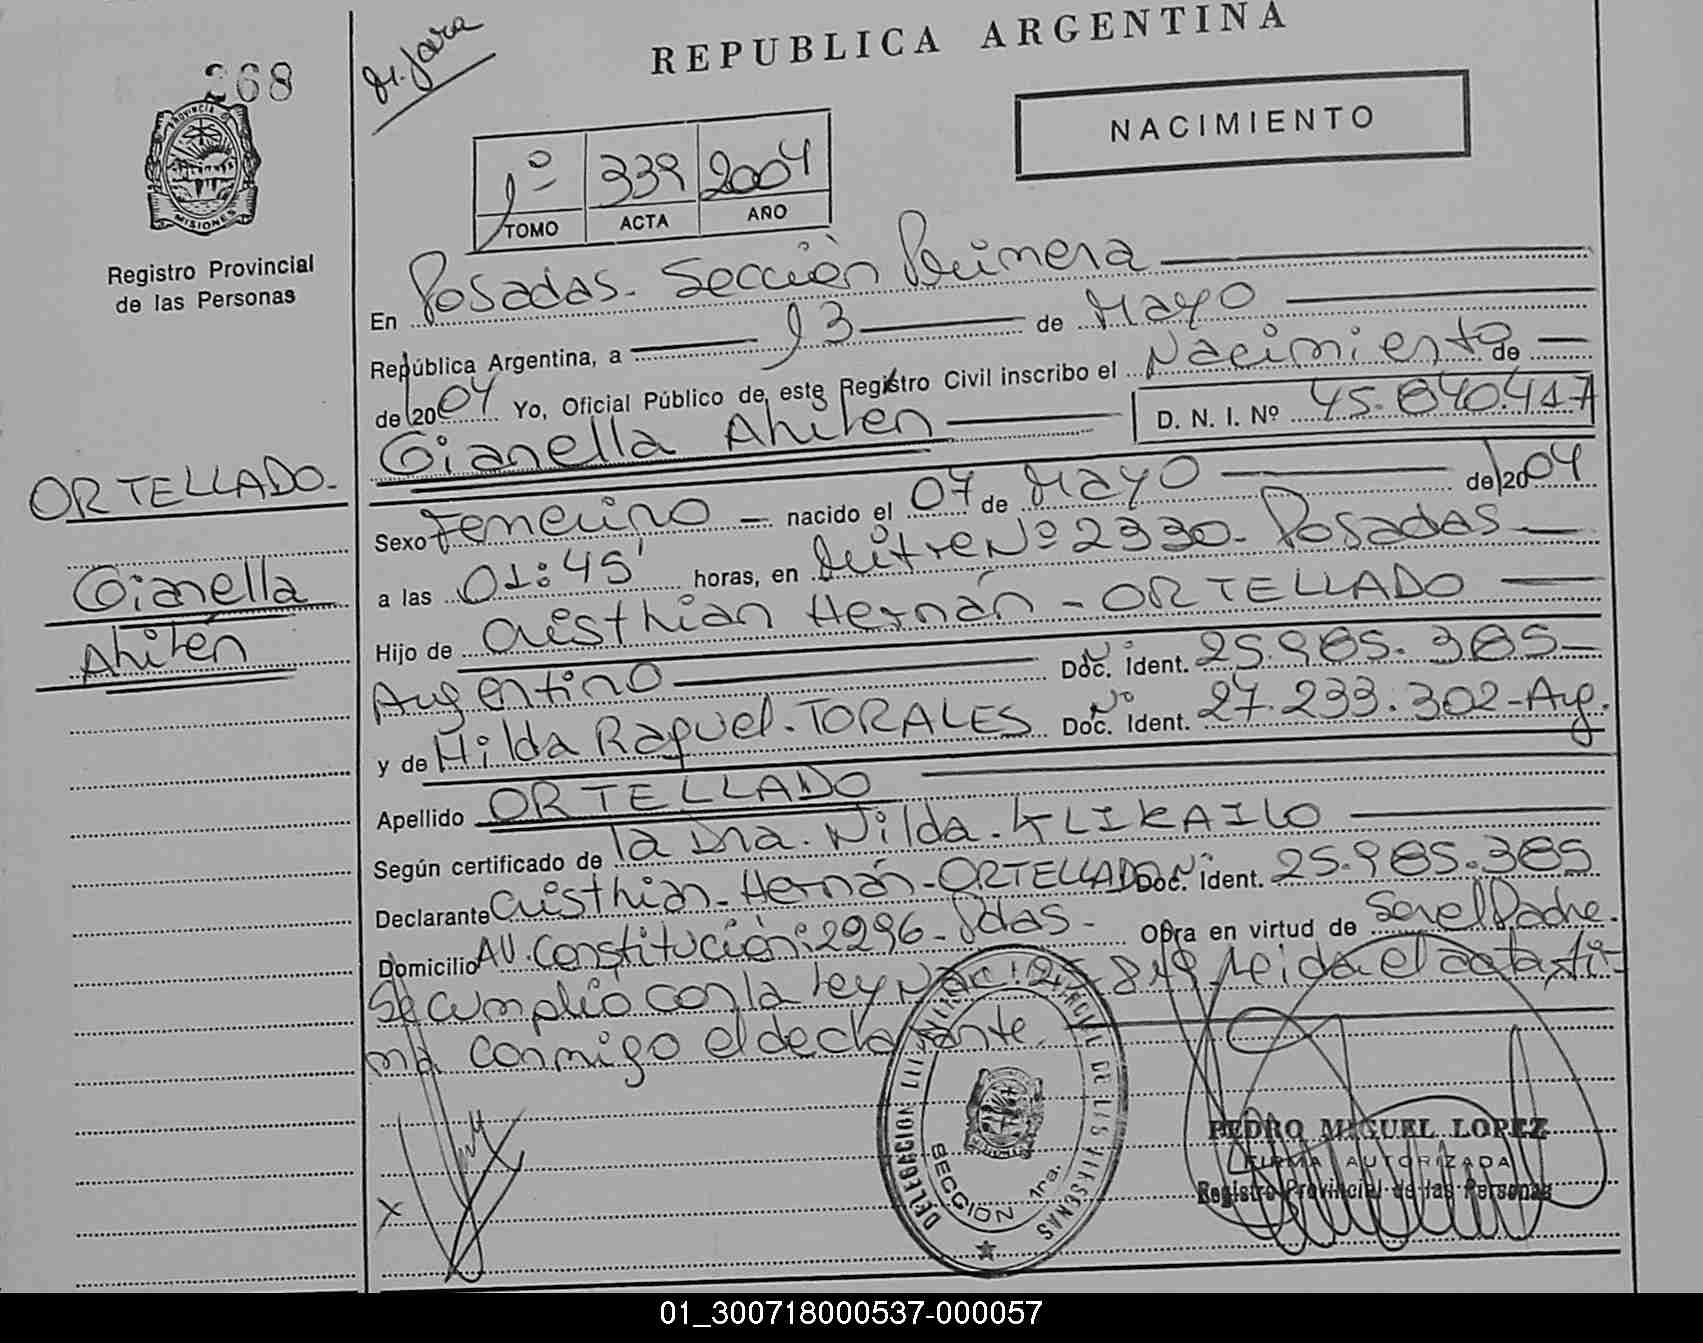 268
REPUBLICA ARGENTINA
NACIMIENTO
PROVINCIA DE
MISIONES
Registro Provincial
de las Personas
1º 339 2004
TOMO ACTA AÑO
En Posadas - Sección Primera
República Argentina, a 13 de Mayo
de 2004 Yo, Oficial Público de este Registro Civil inscribo el Nacimiento de
Gianella Ahilén D. N. I. Nº 45.840.417
ORTELLADO
Gianella
Ahilén
Sexo Femenino nacido el 07 de Mayo de 2004
a las 01:45' horas, en Mitre Nº 2330 - Posadas
Hijo de Cristhian Hernán - ORTELLADO
Argentino Doc. Ident. Nº 25.985.385
y de Hilda Raquel - TORALES Doc. Ident. Nº 27.233.302 - Arg.
Apellido ORTELLADO
Según certificado de la Dra. Nilda - KLIKAILO
Declarante Cristhian - Hernán - ORTELLADO Doc. Ident. Nº 25.985.385
Domicilio AV. Constitución: 2296 - Pdas - Obra en virtud de Ser el Padre.
Se cumplió con la ley Nac: leida el acta, fir-
ma conmigo el declarante.
DELEGACION DE LAS PERSONAS
SECCIÓN 1ra.
PEDRO MIGUEL LOPEZ
FIRMA AUTORIZADA
Registro Provincial de las Personas
X
01_300718000537-000057